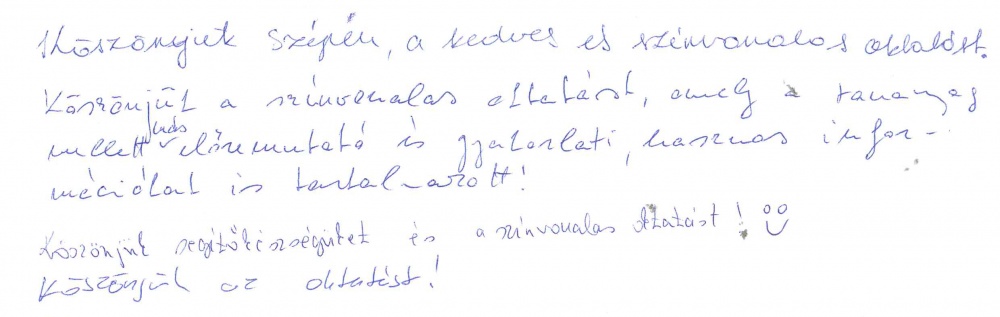 Köszönjük szépen, a kedves és színvonalas oktatást.
Köszönjük a színvonalas oktatást, amely a tananyag
mellett más előremutató és gyakorlati, hasznos infor-
mációkat is tartalmazott!
Köszönjük segítőkészségüket és a színvonalas oktatást! :)
Köszönjük az oktatást!